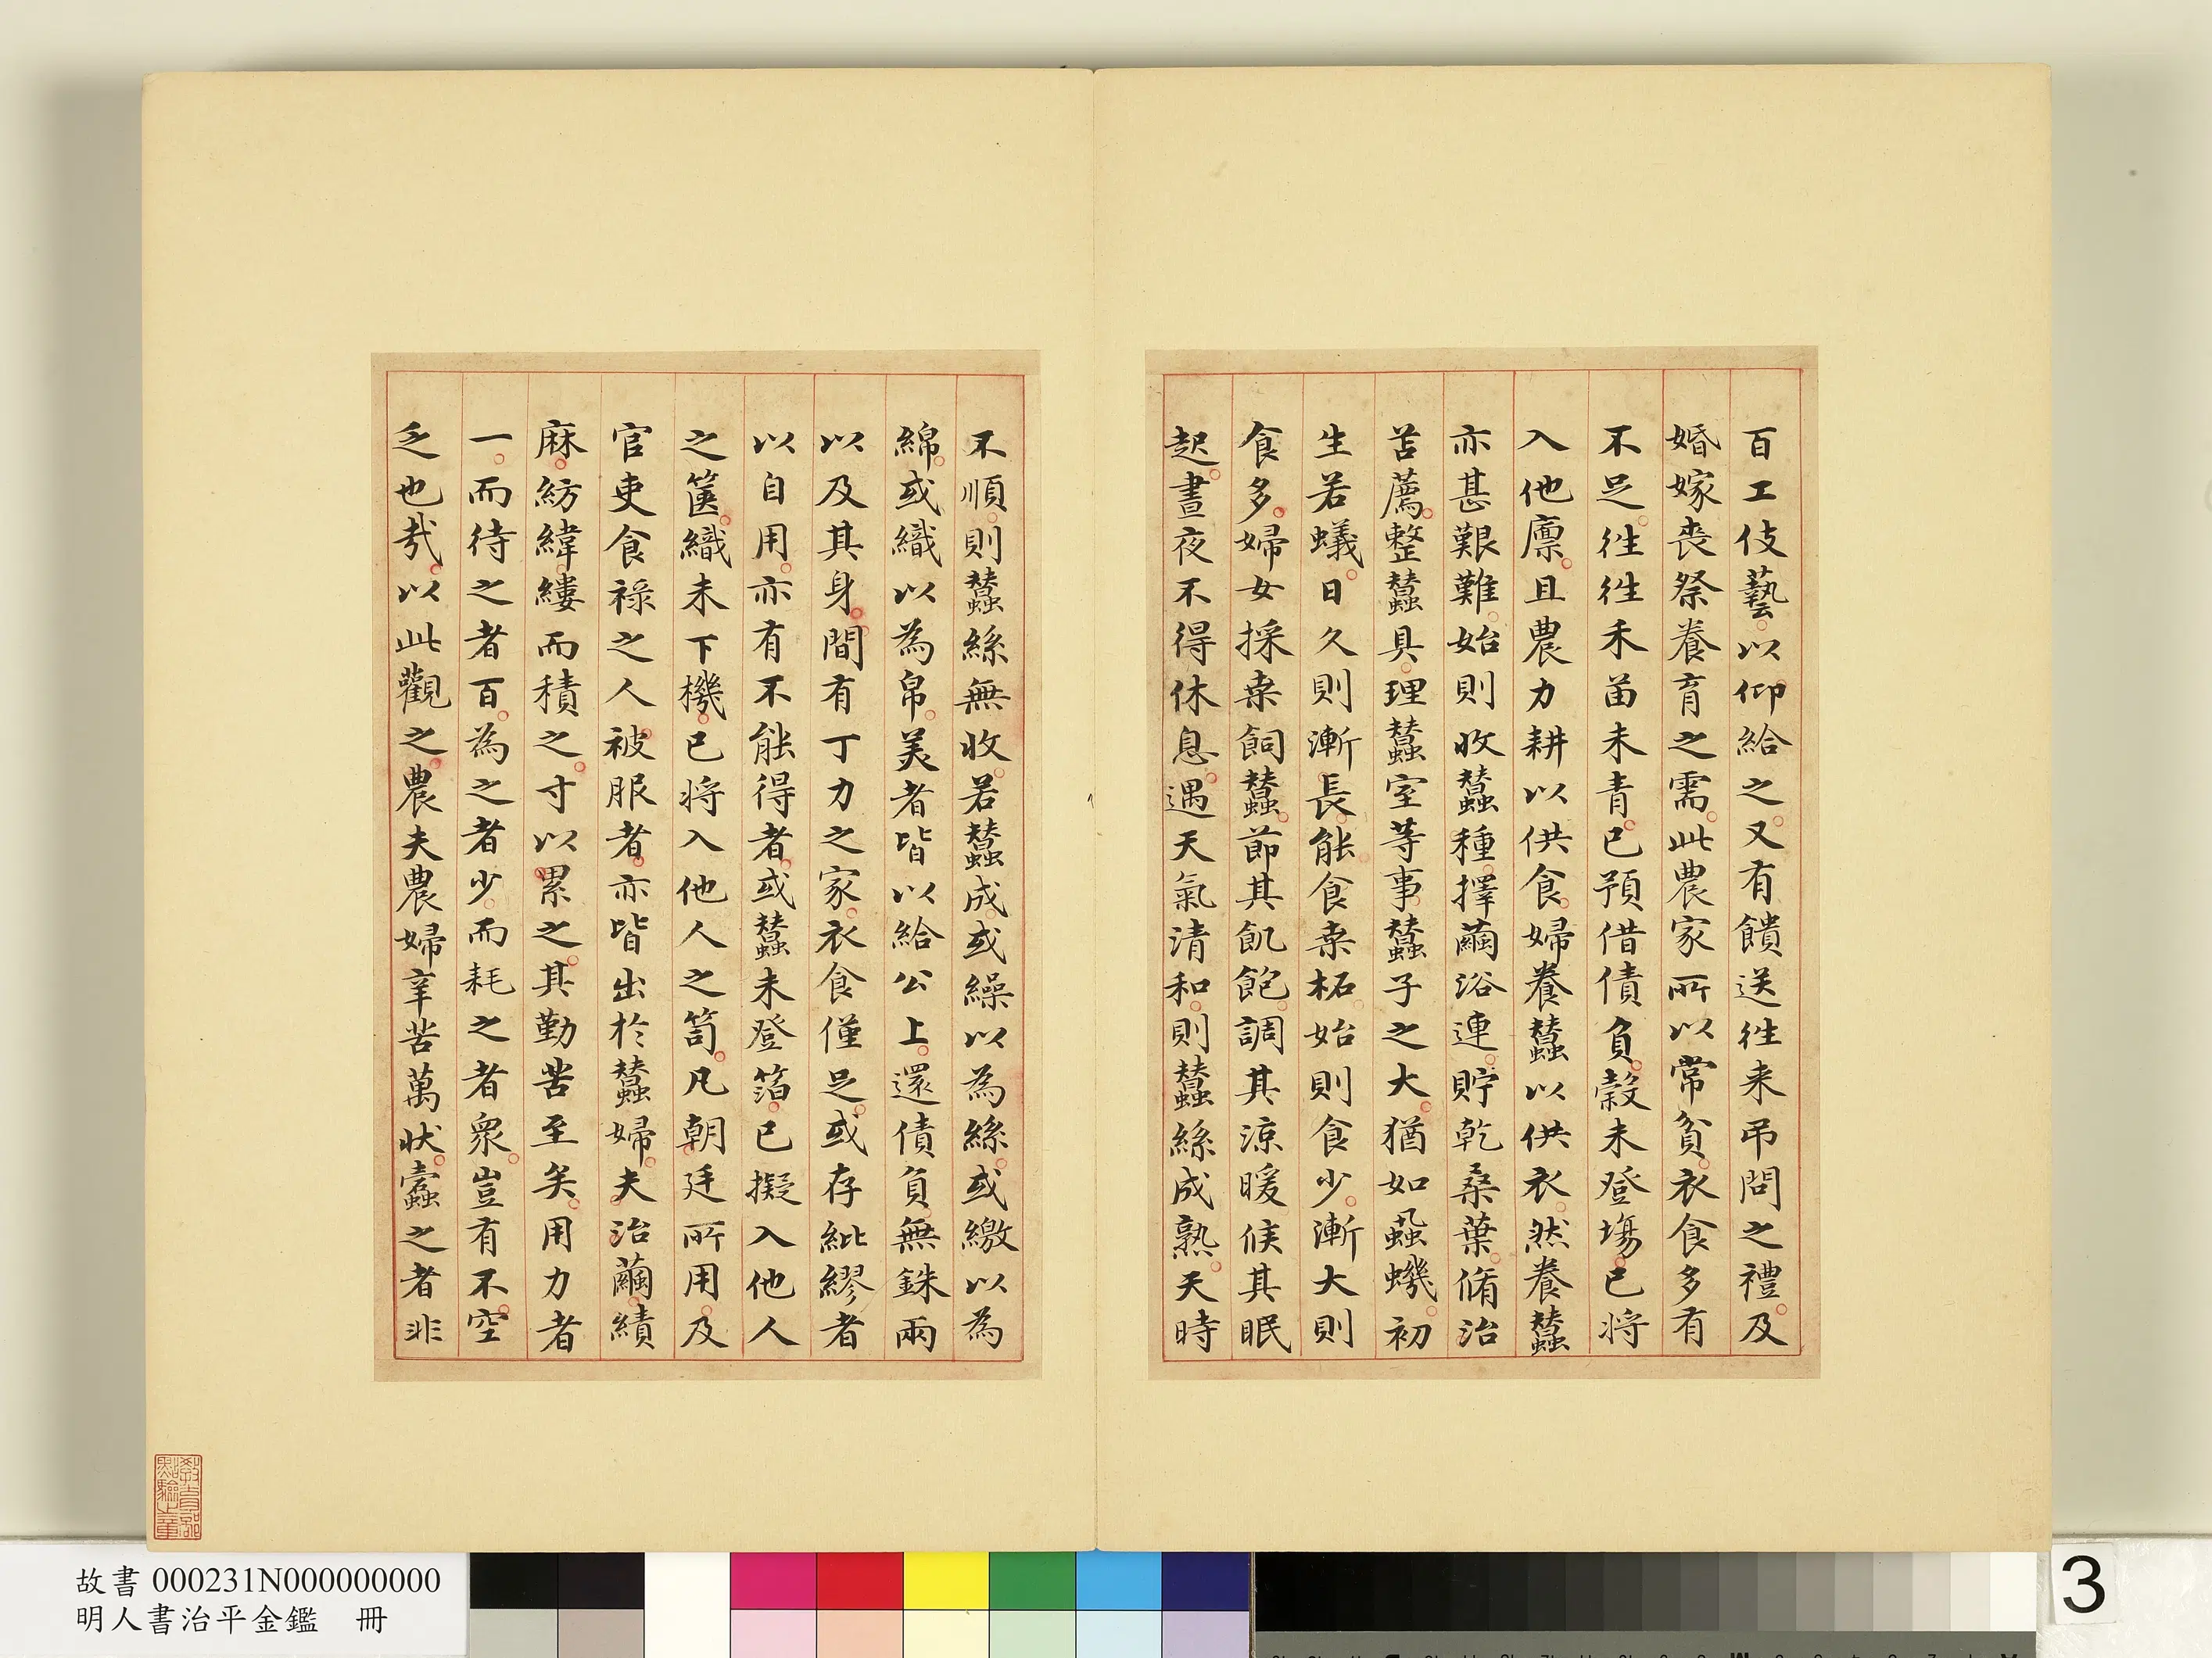 百工伎藝以仰給之又有饋送徃来吊問之禮及
婚嫁喪祭養育之需此農家所以常貧衣食多有
不足徃徃禾苗未青已預借債負穀未登場已将
入他廪且農力耕以供食婦養蠶以供衣然養蠶
亦甚艱難始則收蠶種擇繭浴連貯乾桑葉脩治
苫薦整蠶具理蠶室等事蠶子之大猶如蝨蟣初
生若蟻日久則漸長能食桒柘始則食少漸大則
食多婦女採桒飼蠶節其飢飽調其涼暖候其眠
起晝夜不得休息遇天氣清和則蠶絲成熟天時
不順則蠶絲無收若蠶成或繰以為絲或繳以為
綿或織以為帛美者皆以給公上還債負無銖兩
以及其身間有丁力之家衣食僅足或存紕繆者
以自用亦有不能得者或蠶未登箔已擬入他人
之篋織未下機已将入他人之笥凡朝廷所用及
官吏食祿之人被服者亦皆出於蠶婦夫治繭績
麻紡緯縷而積之寸以累之其勤苦至矣用力者
一而待之者百為之者少而耗之者衆豈有不空
乏也㢤以此觀之農夫農婦辛苦萬状蠹之者非
教育部點驗之章
故書 000231N000000000
明人書治平金鑑 冊
3